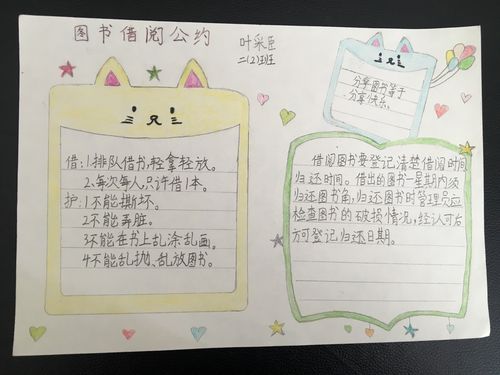 图书借阅公约
叶采臣
二(2)班
借:1.排队借书,轻拿轻放。
2.每次每人只许借1本。
护:1不能撕坏。
2不能弄脏。
3不能在书上乱涂乱画。
4不能乱抛、乱放图书。
分享图书等于
分享快乐。
借阅图书要登记清楚借阅时间
归还时间。借出的图书一星期内须
归还图书角,归还图书时管理员应
检查图书的破损情况,经认可后
方可登记归还日期。